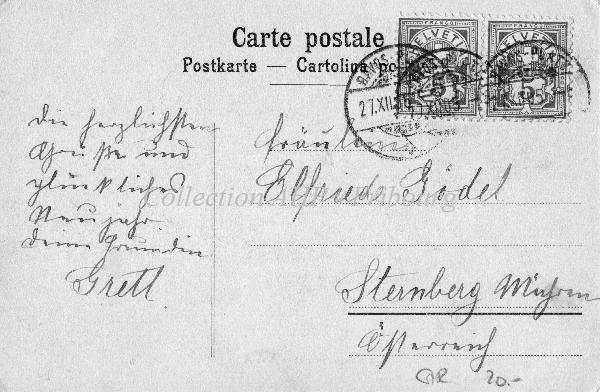 Carte postale
Postkarte — Cartolina po
HELVETIA
FRANCO
5
HELVETIA
FRANCO
5
DAVOS-PL
27.XII
Die herzlichsten
Grüße und
glückliches
Neujahr
Deine Freundin
Gretl
Fräulein
Elfriede Gödel
Sternberg Mähren
Österreich
Collection
20.-